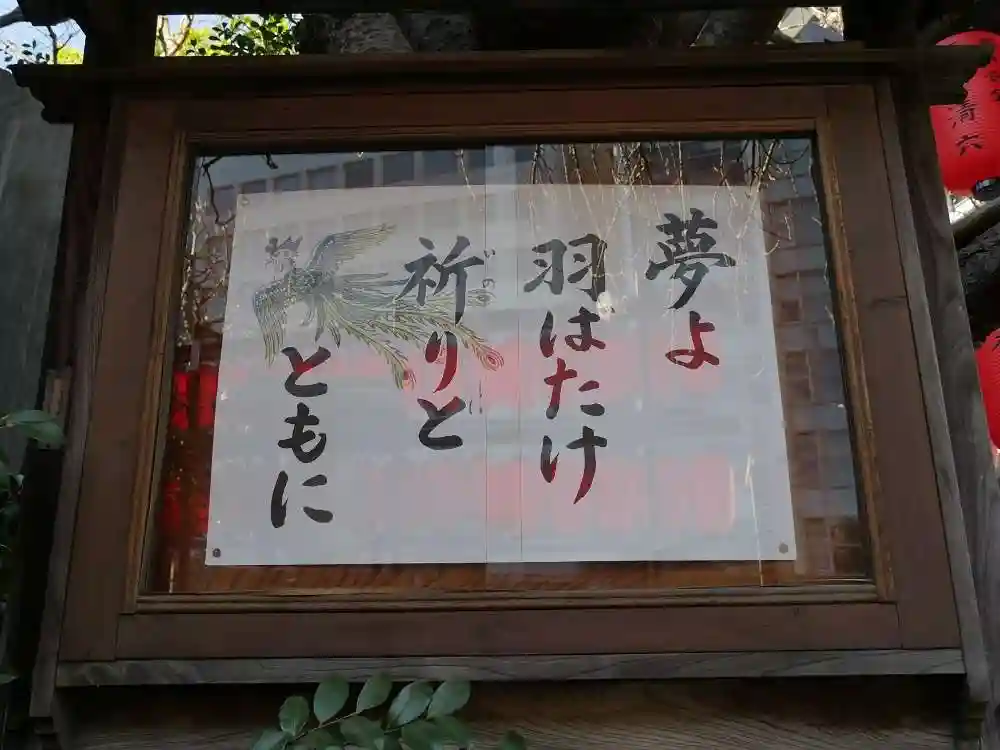 夢よ
羽はたけ
祈りと
ともに
清六